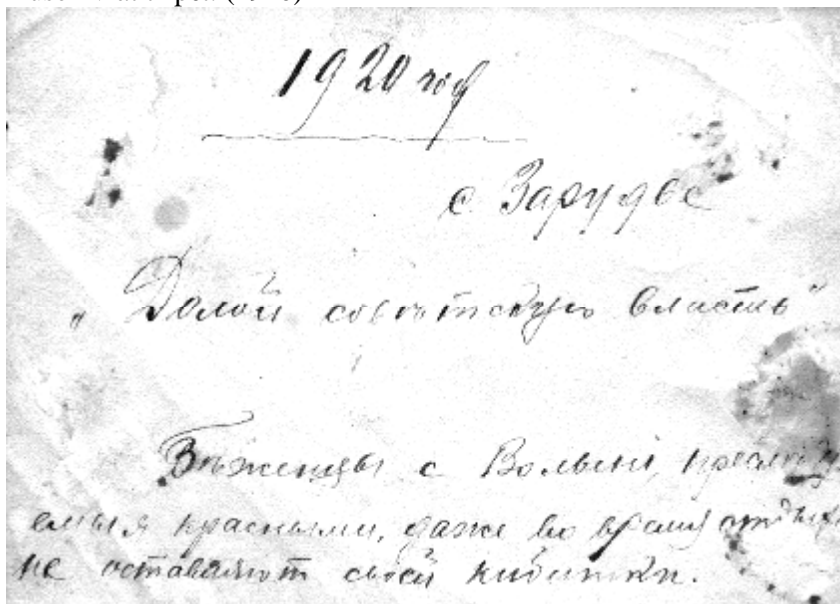 1920 год
с Зарудве
„Долой совѣтскую власть"
Бѣженцы с Волыни, преслѣду
емыя красными, даже во время отдыха
не оставляют своей кибитки.